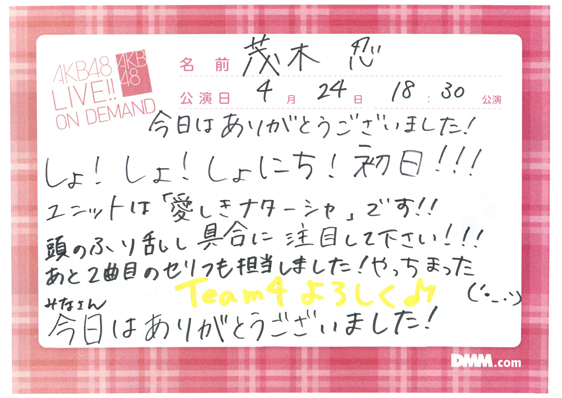 AKB48
LIVE!!
ON DEMAND
AKB
48
名前 茂木 忍
公演日 4月 24日 18:30 公演
今日はありがとうございました!
しょ!しょ!しょにち!初日!!!
ユニットは「愛しきナターシャ」です!!
頭のふり乱し具合に注目して下さい!!!
あと2曲目のセリフも担当しました!やっちまった
Team4よろしく♪
みなさん
今日はありがとうございました!
DMM.com